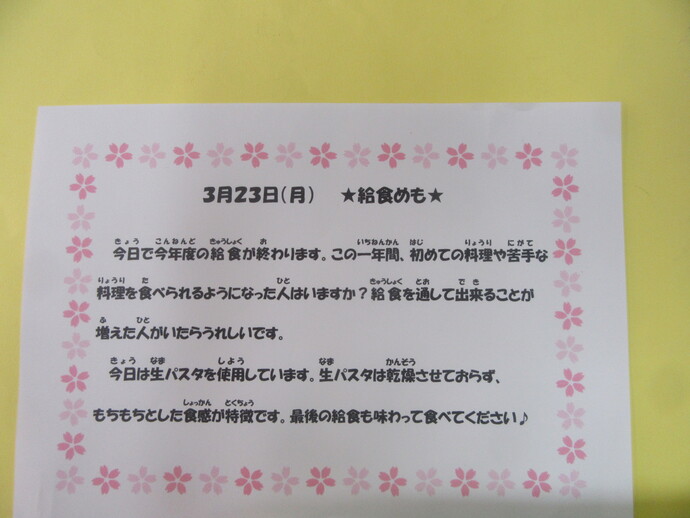 3月23日(月)　★給食めも★
今日で今年度の給食が終わります。この一年間、初めての料理や苦手な
料理を食べられるようになった人はいますか?給食を通して出来ることが
増えた人がいたらうれしいです。
今日は生パスタを使用しています。生パスタは乾燥させておらず、
もちもちとした食感が特徴です。最後の給食も味わって食べてください♪